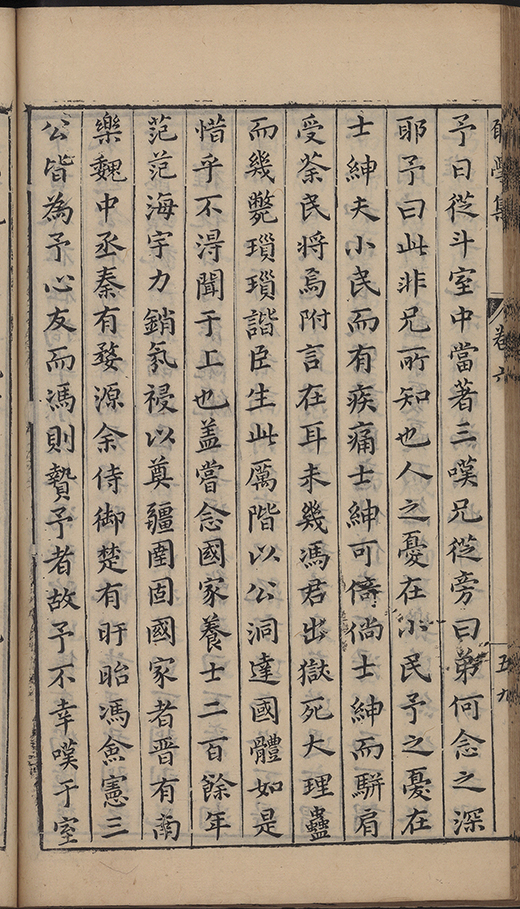 學集 卷六 五九
予曰從斗室中當著三嘆兄從旁曰弟何念之深
耶予曰此非兄所知也人之憂在小民予之憂在
士紳夫小民而有疾痛士紳可倚尙士紳而駢肩
受荼民將焉附言在耳未幾馮君出獄死大理蠱
而幾斃瑣瑣諧臣生此厲階以公洞達國體如是
惜乎不淂聞于上也盖嘗念國家養士二百餘年
范范海宇力銷氛祲以奠疆圉固國家者晋有南
樂魏中丞秦有婺源余侍御楚有盱眙馮僉憲三
公皆為予心友而馮則贄予者故予不幸嘆于室